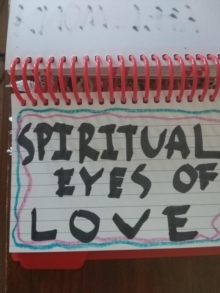 SPIRITUAL
EYES OF
LOVE